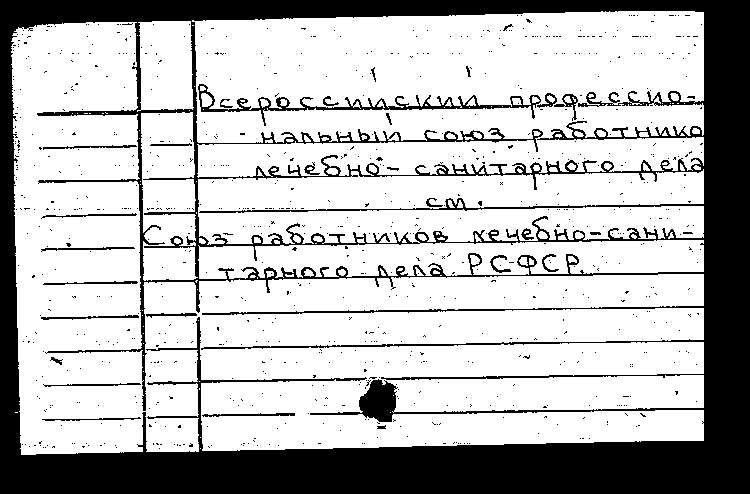 Всероссийский профессио-
нальный союз работнико
лечебно-санитарного дела
см.
Союз работников лечебно-сани-
тарного дела РСФСР.